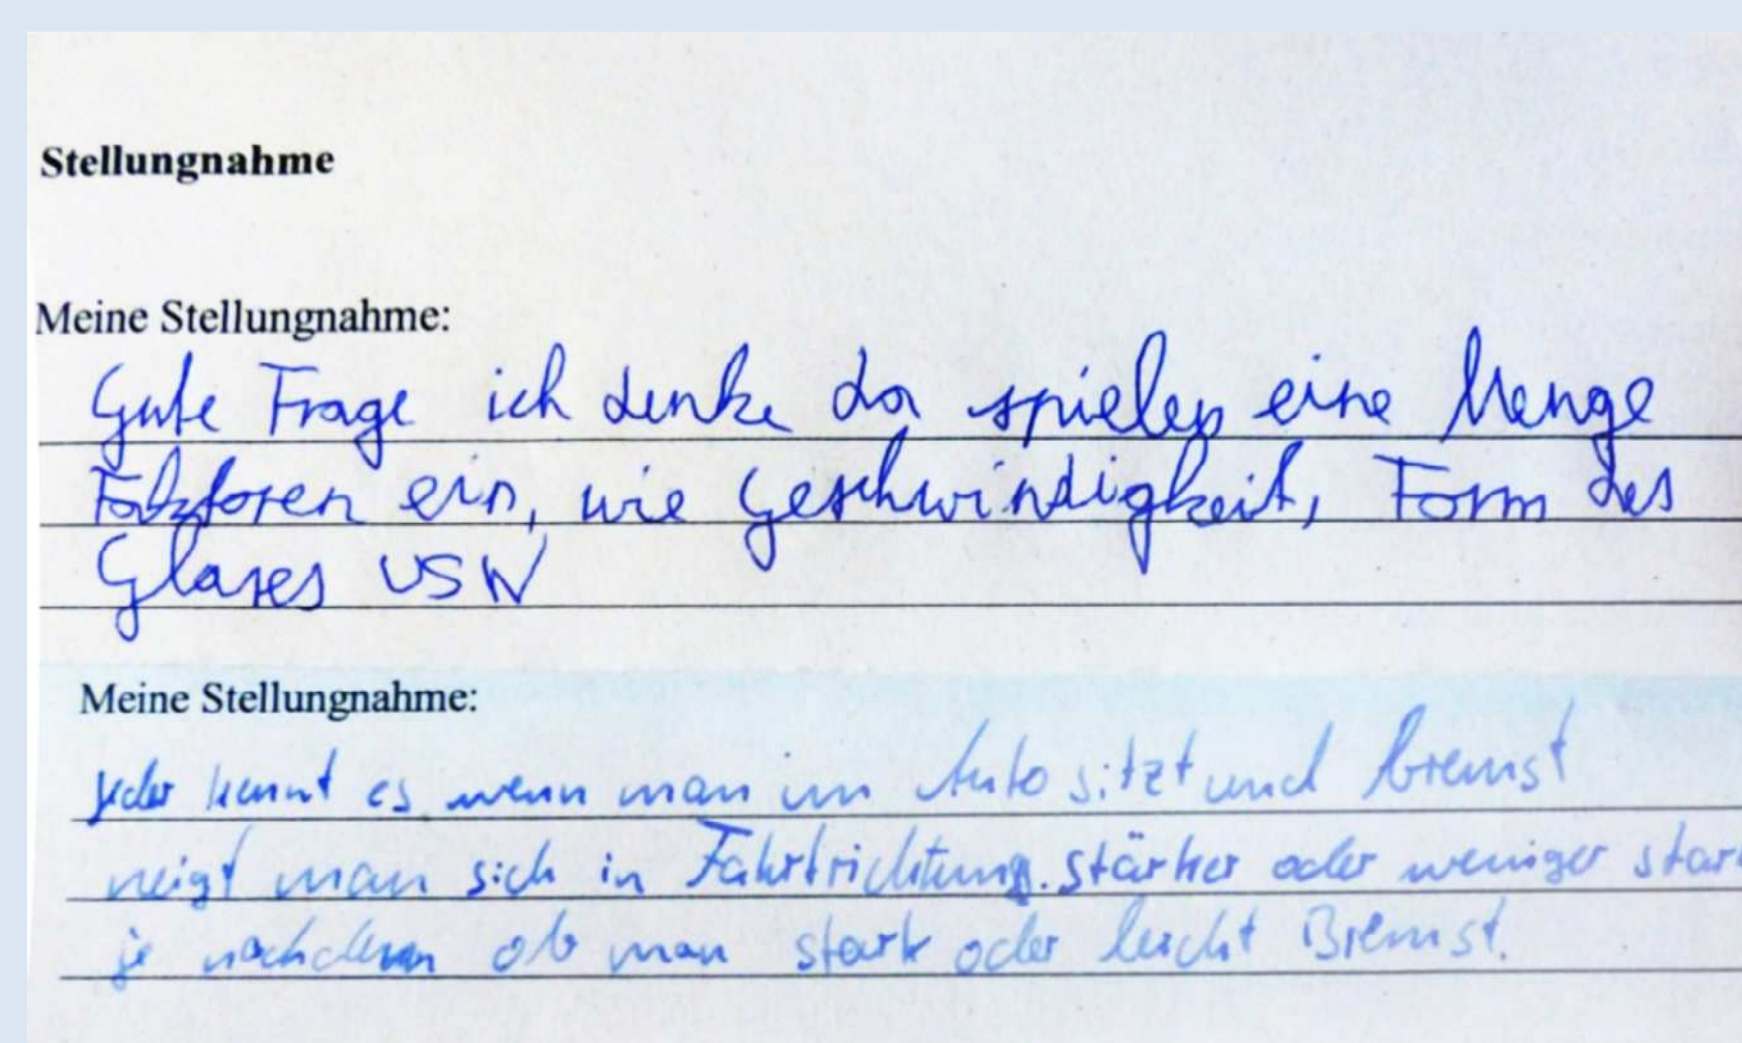 Stellungnahme
Meine Stellungnahme:
Gute Frage ich denke da spielen eine Menge
Faktoren ein, wie Geschwindigkeit, Form des
Glases USW
Meine Stellungnahme:
jeder kennt es wenn man im Auto sitzt und bremst
neigt man sich in Fahrtrichtung. stärker oder weniger star
je nachdem ob man stark oder leicht Bremst.